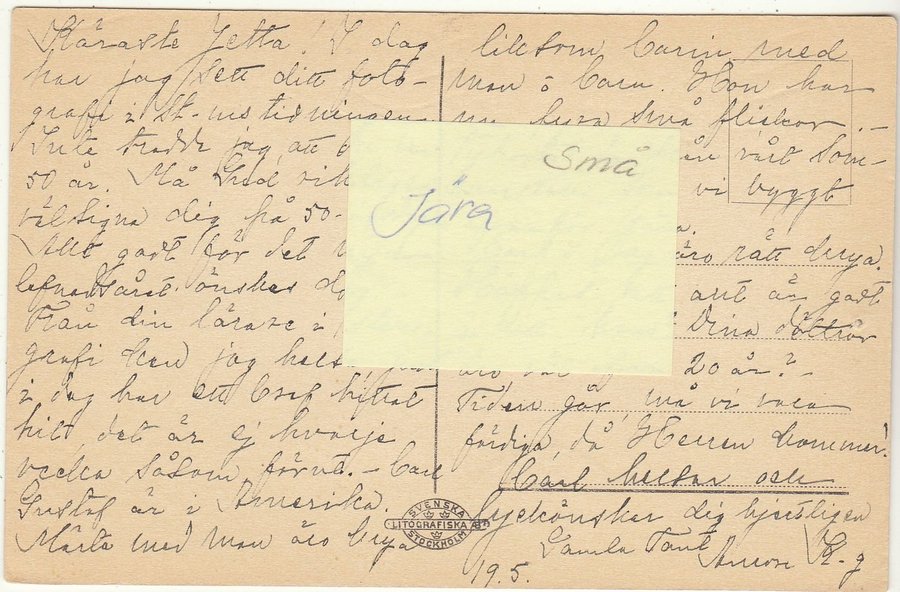 Käraste Jetta! I dag
har jag sett ditt foto-
grafi i St-ms tidningen
Inte trodde jag, att
50 år. Må Gud rik
välsigna dig på 50-
Allt godt för det
lefnadsåret önskas
Från din lärare i
grafi kan jag hels
i dag har ett bref hittat
hit, det är ej hvarje
vecka såsom förut. – Carl
Gustaf är i Amerika.
Märta med man äro krya
liksom Carin med
man o barn. Hon har
nu fyra små flickor. –
vårt som-
vi byggt
äro rätt krya.
att allt är godt
Dina döttrar
20 år? –
Tiden går, må vi vara
färdiga, då Herren kommer.
Carl helsar och
lyckönskar dig hjertligen
Gamla Tant
19.5.
Små
Jära
SVENSKA
LITOGRAFISKA AB
STOCKHOLM